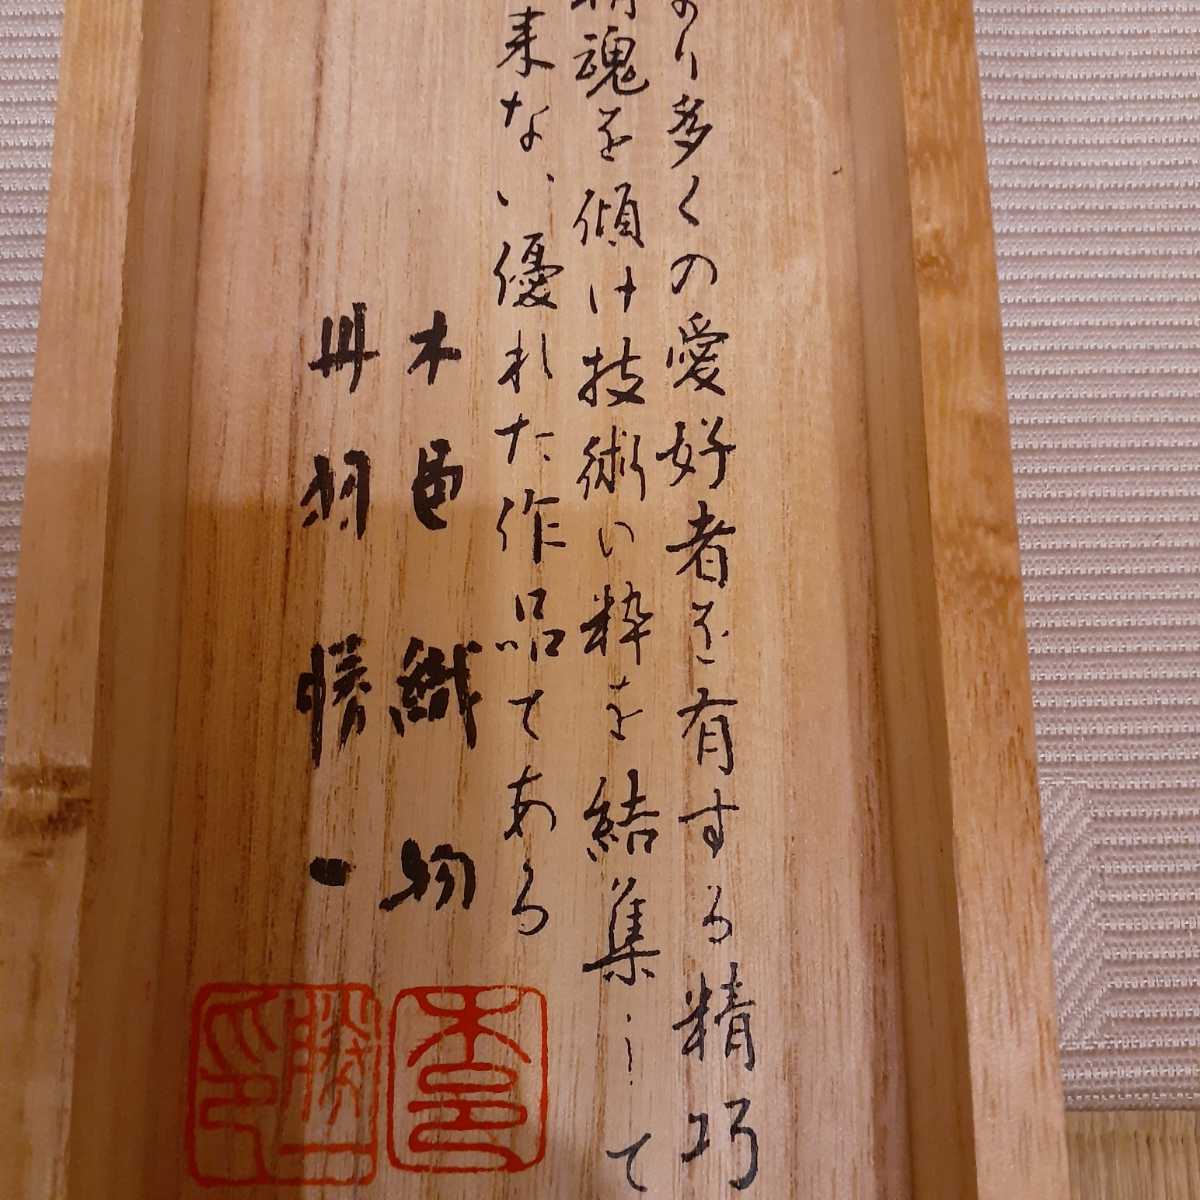 より多くの愛好者を有する精巧
精魂を傾け技術の粋を結集して
来ない優れた作品である
木邑織物
丹羽勝一
木邑
勝一印